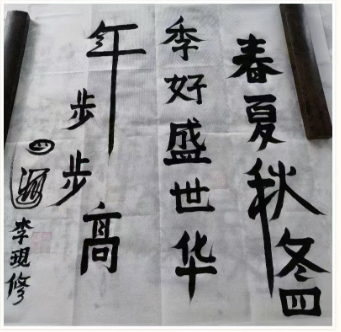 春夏秋冬四
季好盛世华
年步步高
四 李現修